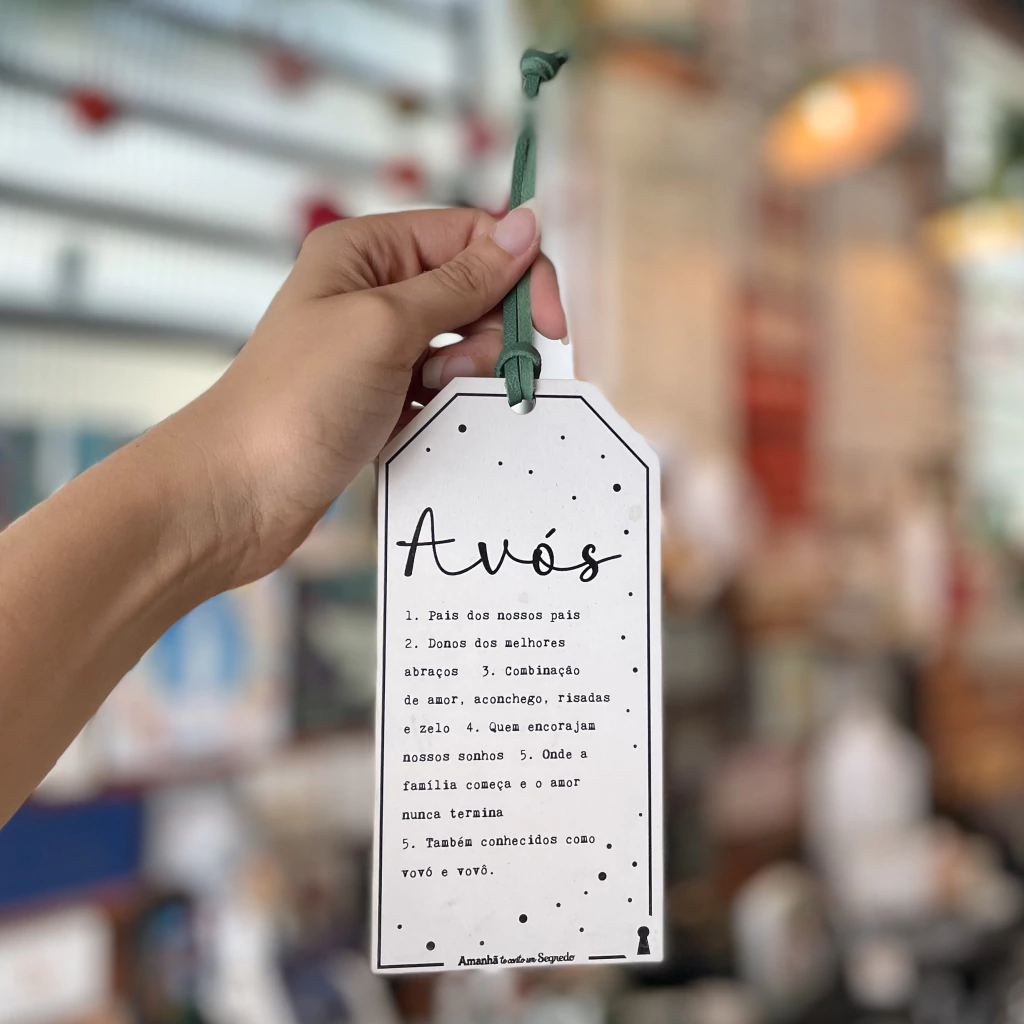 Avós
1. Pais dos nossos pais
2. Donos dos melhores
abraços 3. Combinação
de amor, aconchego, risadas
e zelo 4. Quem encorajam
nossos sonhos 5. Onde a
família começa e o amor
nunca termina
5. Também conhecidos como
vovó e vovô.
Amanhã te conto um Segredo